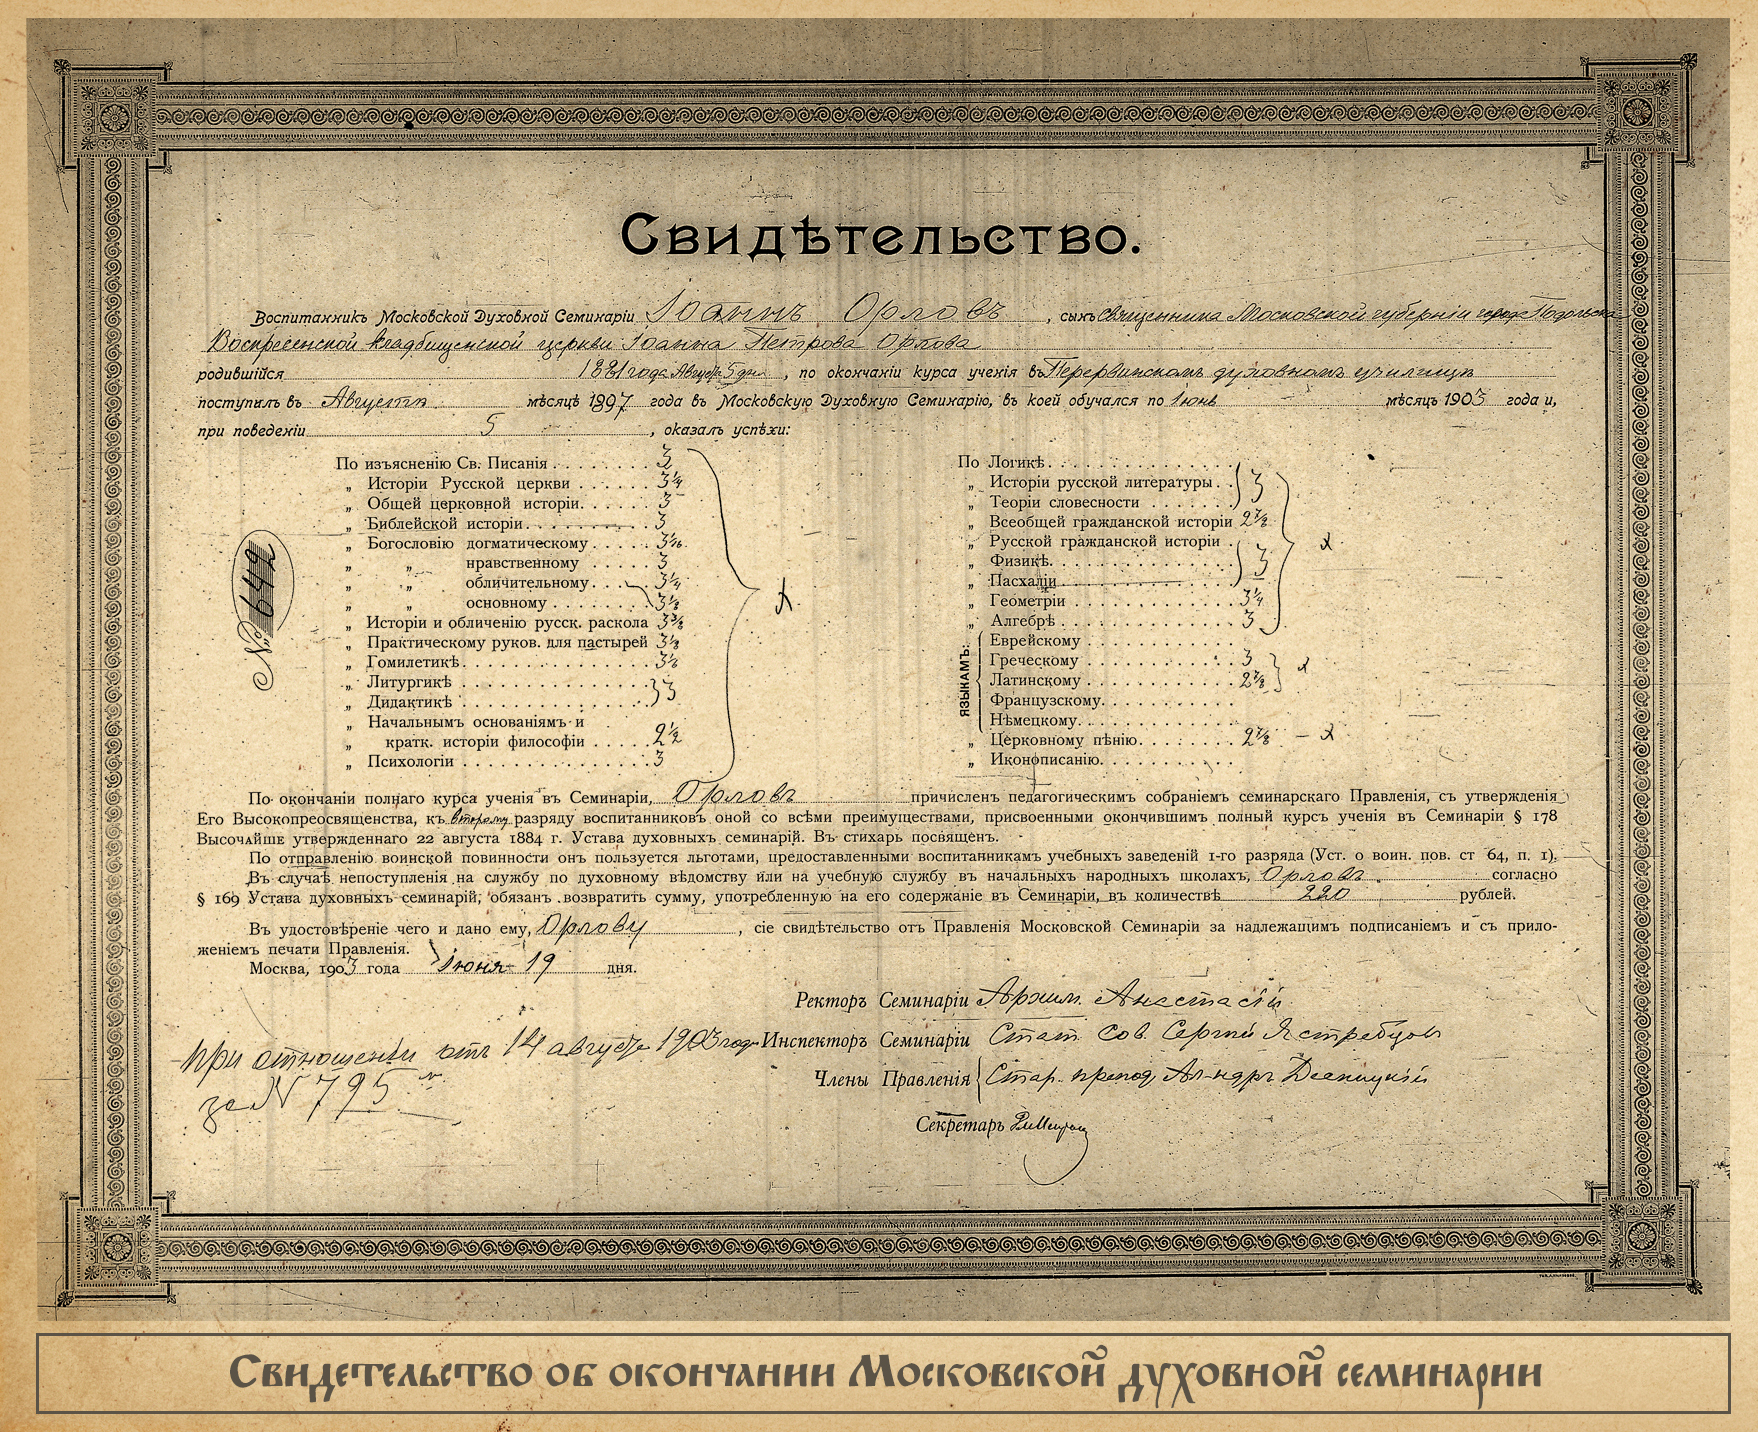 Свидѣтельство.
Воспитанникъ Московской Духовной Семинаріи Іоаннъ Орловъ, сынъ священника Московской губерніи города Подольска
Воскресенской кладбищенской церкви Іоанна Петрова Орлова
родившійся 1881 года Августа 5 дня, по окончаніи курса ученія въ Перервинскомъ духовномъ училищѣ
поступилъ въ Августѣ мѣсяцѣ 1897 года въ Московскую Духовную Семинарію, въ коей обучался по Іюнь мѣсяцъ 1903 года и,
при поведеніи 5, оказалъ успѣхи:
№ 642
По изъясненію Св. Писанія 3
„ Исторіи Русской церкви 3¼
„ Общей церковной исторіи 3
„ Библейской исторіи 3
„ Богословію догматическому
„ „ нравственному 3
„ „ обличительному 3¼
„ „ основному 3⅛
„ Исторіи и обличенію русск. раскола 3⅜
„ Практическому руков. для пастырей 3⅛
„ Гомилетикѣ
„ Литургикѣ
„ Дидактикѣ 3
„ Начальнымъ основаніямъ и
„ кратк. исторіи философіи 2½
„ Психологіи 3
По Логикѣ
„ Исторіи русской литературы 3
„ Теоріи словесности
„ Всеобщей гражданской исторіи 2⅞
„ Русской гражданской исторіи
„ Физикѣ 3
„ Пасхаліи
„ Геометріи 3¼
„ Алгебрѣ 3
ЯЗЫКАМЪ:
Еврейскому
Греческому 3
Латинскому 2⅞
Французскому
Нѣмецкому
„ Церковному пѣнію 2⅞
„ Иконописанію
По окончаніи полнаго курса ученія въ Семинаріи, Орловъ причисленъ педагогическимъ собраніемъ семинарскаго Правленія, съ утвержденія
Его Высокопреосвященства, къ второму разряду воспитанниковъ оной со всѣми преимуществами, присвоенными окончившимъ полный курсъ ученія въ Семинаріи § 178
Высочайше утвержденнаго 22 августа 1884 г. Устава духовныхъ семинарій. Въ стихарь посвященъ.
По отправленію воинской повинности онъ пользуется льготами, предоставленными воспитанникамъ учебныхъ заведеній 1-го разряда (Уст. о воин. пов. ст 64, п. 1).
Въ случаѣ непоступленія на службу по духовному вѣдомству или на учебную службу въ начальныхъ народныхъ школахъ, Орловъ согласно
§ 169 Устава духовныхъ семинарій, обязанъ возвратить сумму, употребленную на его содержаніе въ Семинаріи, въ количествѣ 220 рублей.
Въ удостовѣреніе чего и дано ему, Орлову, сіе свидѣтельство отъ Правленія Московской Семинаріи за надлежащимъ подписаніемъ и съ прило-
женіемъ печати Правленія.
Москва, 1903 года Іюня 19 дня.
Ректоръ Семинаріи Архим. Анастасій
Инспекторъ Семинаріи Стат. Сов. Сергѣй Ястребцовъ
Члены Правленія Стар. препод. Ал-ндръ
Секретарь
При отношеніи отъ 14 августа 1903 года
за N 795
Свидетельство об окончании Московской духовной семинарии